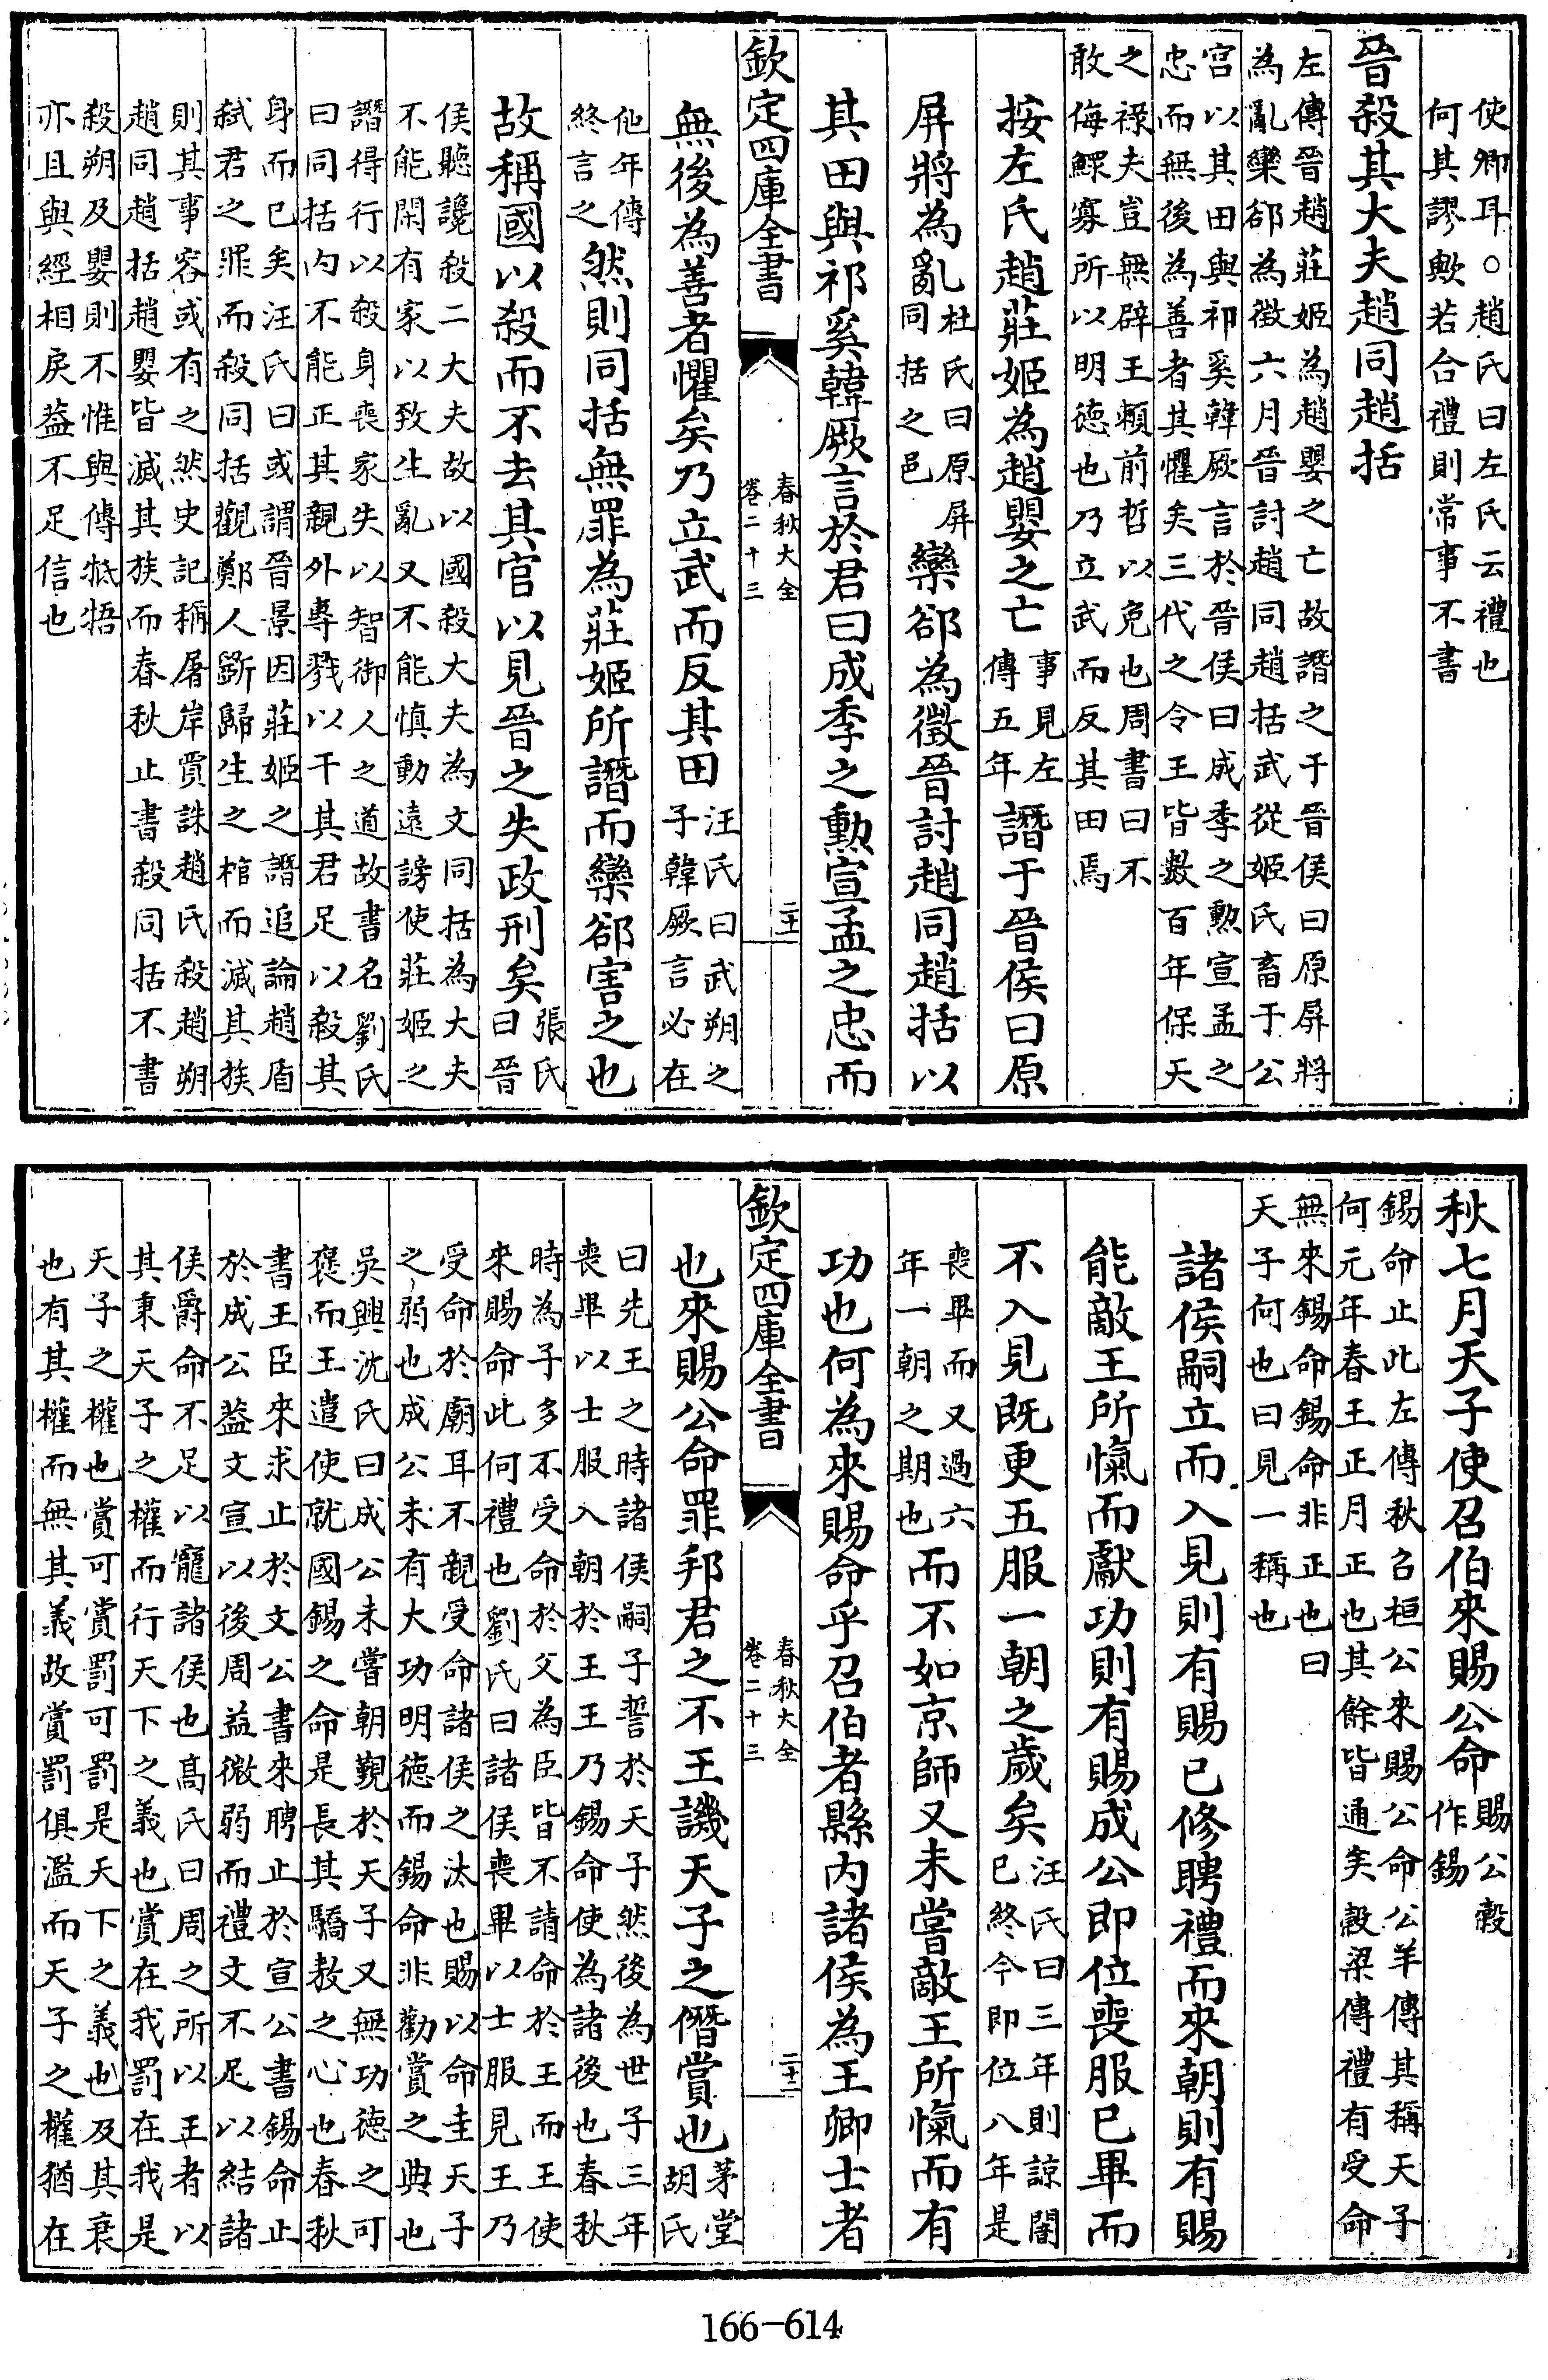 使卿耳○趙氏曰左氏云禮也
何其謬歟若合禮則常事不書
晉殺其大夫趙同趙括
左傳晉趙莊姬為趙嬰之亡故譖之于晉侯曰原屏將
為亂欒郤為徵六月晉討趙同趙括武從姬氏畜于公
宫以其田與祁奚韓厥言於晉侯曰成季之勲宣孟之
忠而無後為善者其懼矣三代之令王皆數百年保天
之祿夫豈無辟王賴前哲以免也周書曰不
敢侮鰥寡所以明德也乃立武而反其田焉
按左氏趙莊姬為趙嬰之亡事見左傳五年譖于晉侯曰原
屏將為亂杜氏曰原屏同括之邑欒郤為徵晉討趙同趙括以
其田與祁奚韓厥言於君曰成季之勲宣孟之忠而
欽定四庫全書 春秋大全卷二十三 二十一
無後為善者懼矣乃立武而反其田汪氏曰武朔之子韓厥言必在
他年傳終言之然則同括無罪為莊姬所譖而欒郤害之也
故稱國以殺而不去其官以見晉之失政刑矣張氏曰晉
侯聽讒殺二大夫故以國殺大夫為文同括為大夫
不能閑有家以致生亂又不能慎動遠謗使莊姬之
譖得行以殺身喪家失以智御人之道故書名劉氏
曰同括内不能正其親外專戮以干其君足以殺其
身而已矣汪氏曰或謂晉景因莊姬之譖追論趙盾
弒君之罪而殺同括觀鄭人斲歸生之棺而滅其族
則其事容或有之然史記稱屠岸賈誅趙氏殺趙朔
趙同趙括趙嬰皆滅其族而春秋止書殺同括不書
殺朔及嬰則不惟與傳牴牾
亦且與經相戾葢不足信也
秋七月天子使召伯來賜公命賜公穀作錫
錫命止此左傳秋召桓公來賜公命公羊傳其稱天子
何元年春王正月正也其餘皆通矣穀梁傳禮有受命
無來錫命錫命非正也曰
天子何也曰見一稱也
諸侯嗣立而入見則有賜已修聘禮而來朝則有賜
能敵王所愾而獻功則有賜成公即位喪服已畢而
不入見既更五服一朝之歲矣汪氏曰三年則諒闇已終今即位八年是
喪畢而又過六年一朝之期也而不如京師又未嘗敵王所愾而有
功也何為來賜命乎召伯者縣内諸侯為王卿士者
欽定四庫全書 春秋大全卷二十三 二十二
也來賜公命罪邦君之不王譏天子之僭賞也茅堂胡氏
曰先王之時諸侯嗣子誓於天子然後為世子三年
喪畢以士服入朝於王王乃錫命使為諸後也春秋
時為子多不受命於父為臣皆不請命於王而王使
來賜命此何禮也劉氏曰諸侯喪畢以士服見王乃
受命於廟耳不親受命諸侯之汰也賜以命圭天子
之弱也成公未有大功明德而錫命非勸賞之典也
吳興沈氏曰成公未嘗朝覲於天子又無功德之可
褒而王遣使就國錫之命是長其驕敖之心也春秋
書王臣來求止於文公書來聘止於宣公書錫命止
於成公葢文宣以後周益微弱而禮文不足以結諸
侯爵命不足以寵諸侯也髙氏曰周之所以王者以
其秉天子之權而行天下之義也賞在我罰在我是
天子之權也賞可賞罰可罰是天下之義也及其衰
也有其權而無其義故賞罰俱濫而天子之權猶在
166-614